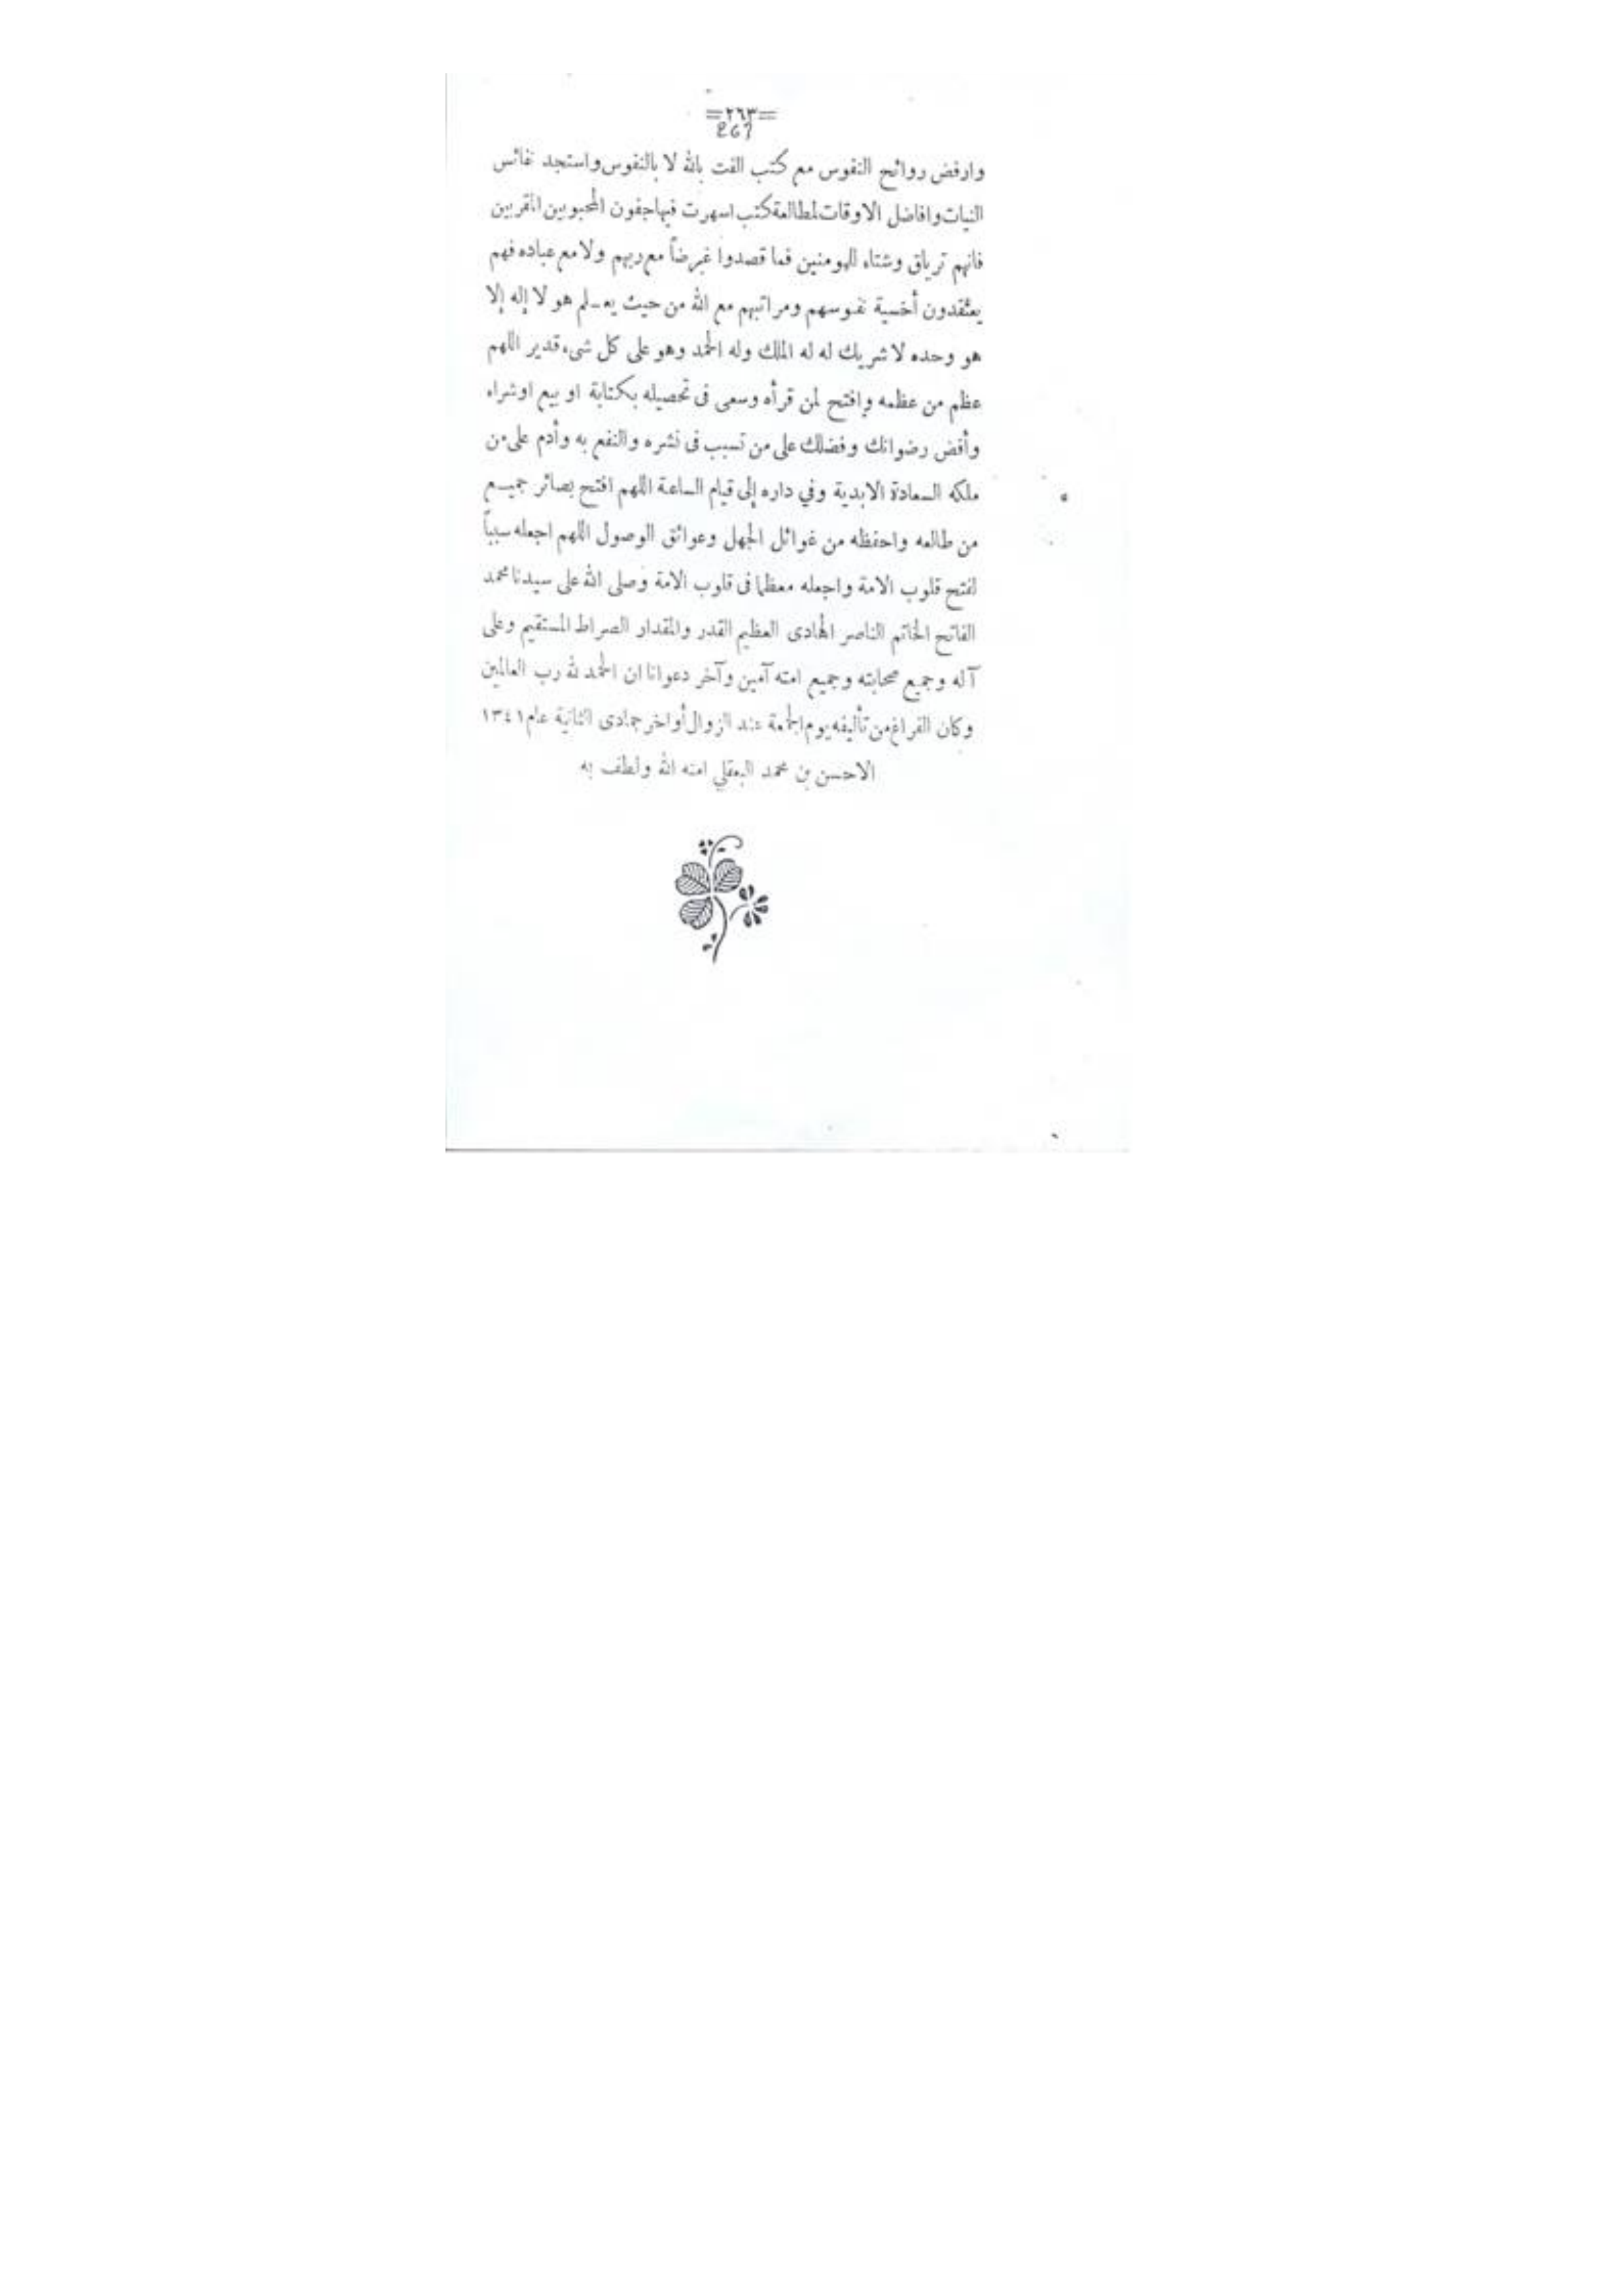 =٢٦٣=
267
وارفض روائح النفوس مع كتب الفت بالله لا بالنفوس واستجد نفائس
النيات وافاضل الاوقات لمطالعة كتب اسهرت فيها جفون المحبوبين المقربين
فانهم ترياق وشتاء للمومنين فما قصدوا غرضاً مع ربهم ولا مع عباده فهم
يعتقدون أخسية نفوسهم ومراتبهم مع الله من حيث يعلم هو لا إله إلا
هو وحده لا شريك له له الملك وله الحمد وهو على كل شيء قدير اللهم
عظم من عظمه وافتح لمن قرأه وسعى فى تحصيله بكتابة او بيع او شراء
وأفض رضوانك وفضلك على من تسبب فى نشره والنفع به وأدم على من
ملكه السعادة الابدية وفي داره إلى قيام الساعة اللهم افتح بصائر جميع
من طالعه واحفظه من غوائل الجهل وعوائق الوصول اللهم اجعله سبباً
لفتح قلوب الامة واجعله معظما فى قلوب الامة وصلى الله على سيدنا محمد
الفاتح الخاتم الناصر الهادى العظيم القدر والمقدار الصراط المستقيم وعلى
آله وجميع صحابته وجميع امته آمين وآخر دعوانا ان الحمد لله رب العالمين
وكان الفراغ من تأليفه يوم الجمعة عند الزوال أواخر جمادى الثانية عام ١٣٤١
الاحسن بن محمد البعقلي امنه الله ولطف به